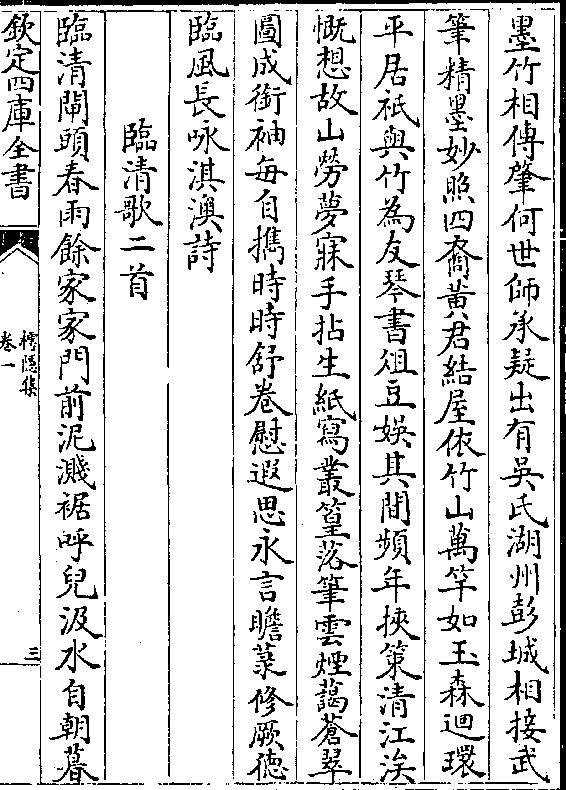 墨竹相傳肇何世師承疑出有吳氏湖州彭城相接武
筆精墨妙照四裔黄君結屋依竹山萬竿如玉森迴環
平居祇與竹為友琴書俎豆娛其間頻年挾策清江涘
慨想故山勞夢寐手拈生紙寫叢篁落筆雲煙藹蒼翠
圖成銜袖每自攜時時舒卷慰遐思永言瞻菉修厥德
臨風長咏淇澳詩
臨清歌二首
臨清閘頭春雨餘家家門前泥濺裾呼兒汲水自朝暮
欽定四庫全書
樗隱集
卷一
三